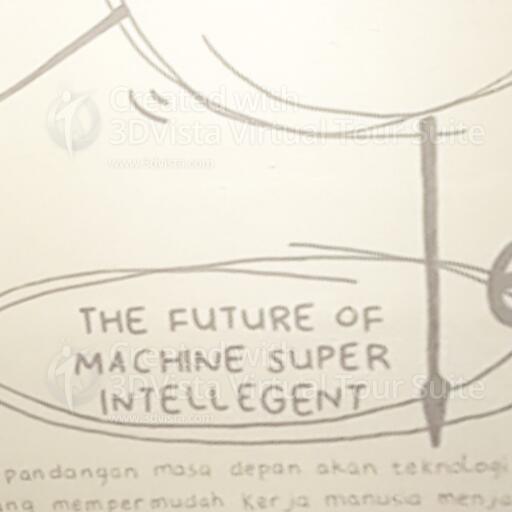 Created with
3DVista Virtual Tour Suite
www.3dvista.com
THE FUTURE OF
MACHINE SUPER
INTELLEGENT
Created with
3DVista Virtual Tour Suite
www.3dvista.com
pandangan masa depan akan teknologi
mempermudah kerja manusia